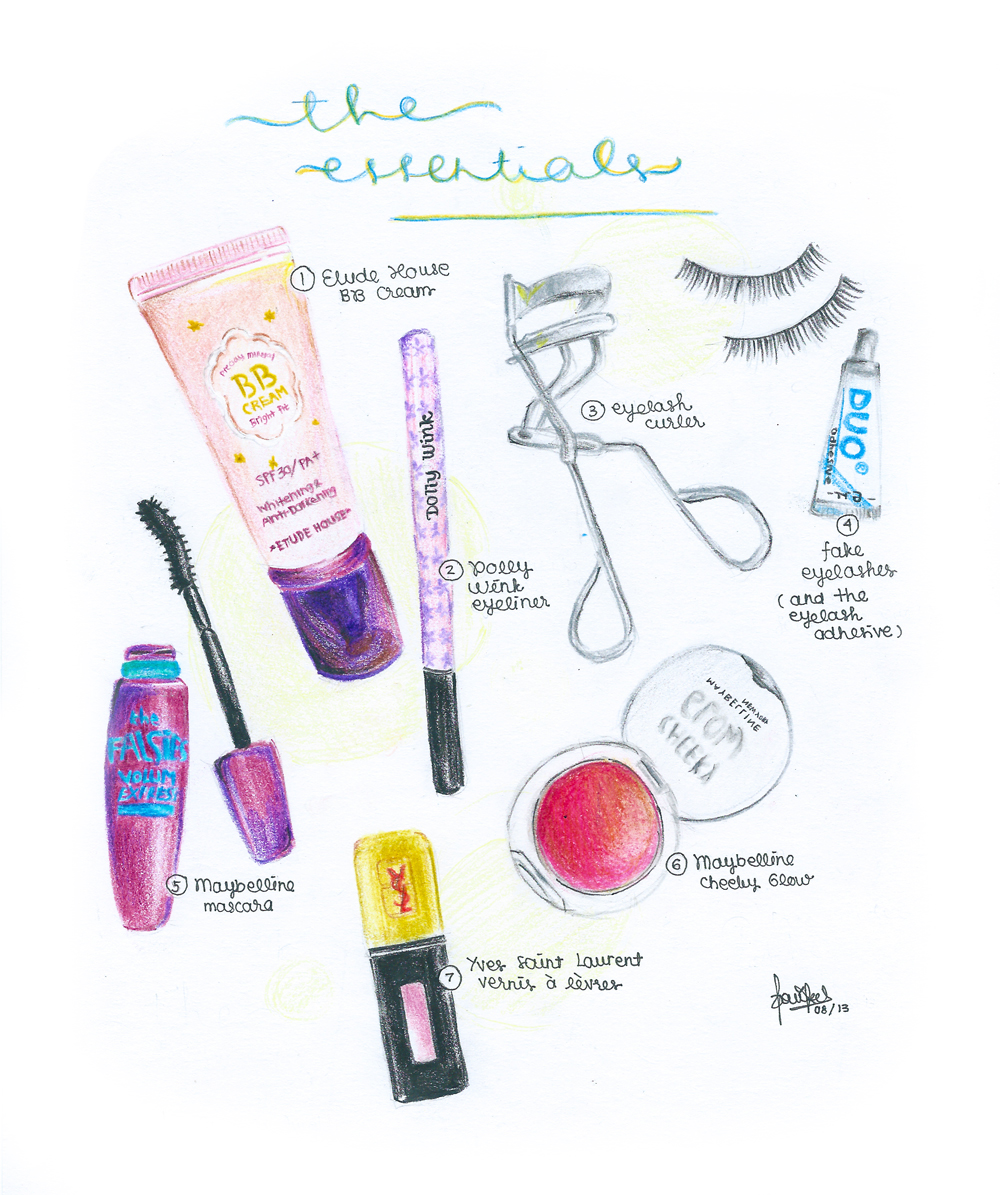 the
essentials
1 Etude House
BB Cream
Precious mineral
BB
CREAM
Bright Fit
SPF30/PA+
Whitening &
Anti-Darkening
*ETUDE HOUSE*
Dolly Wink
2 Dolly
Wink
eyeliner
3 eyelash
curler
DUO®
adhesive
4
fake
eyelashes
(and the
eyelash
adhesive)
the
FALSIES
VOLUM'
EXPRESS
5 Maybelline
mascara
MAYBELLINE
NEW YORK
CHEEKY
GLOW
6 Maybelline
Cheeky Glow
YSL
7 Yves Saint Laurent
vernis à lèvres
08/13